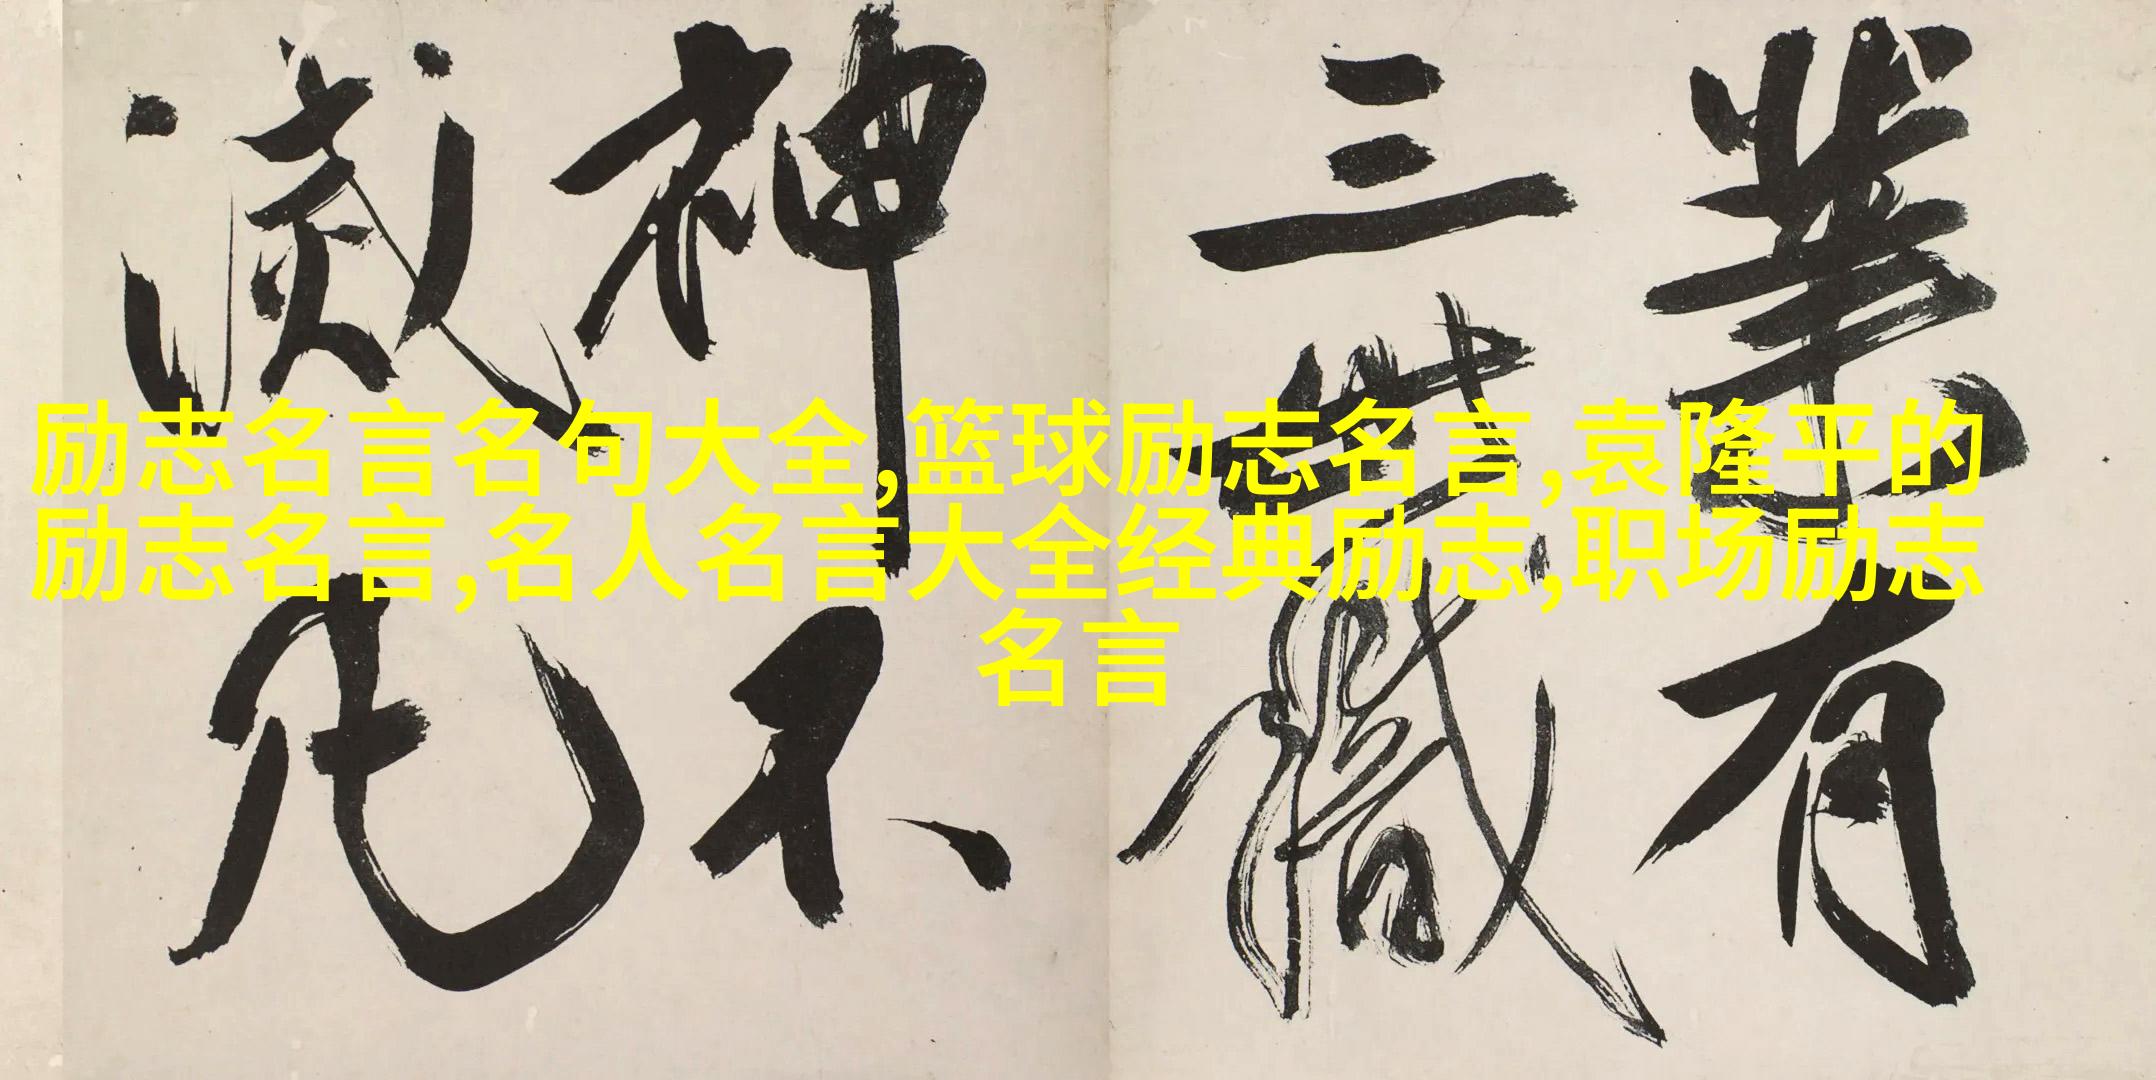 業有
三世職
神不
滅
励志名言名句大全,篮球励志名言,袁隆平的
励志名言,名人名言大全经典励志,职场励志
名言